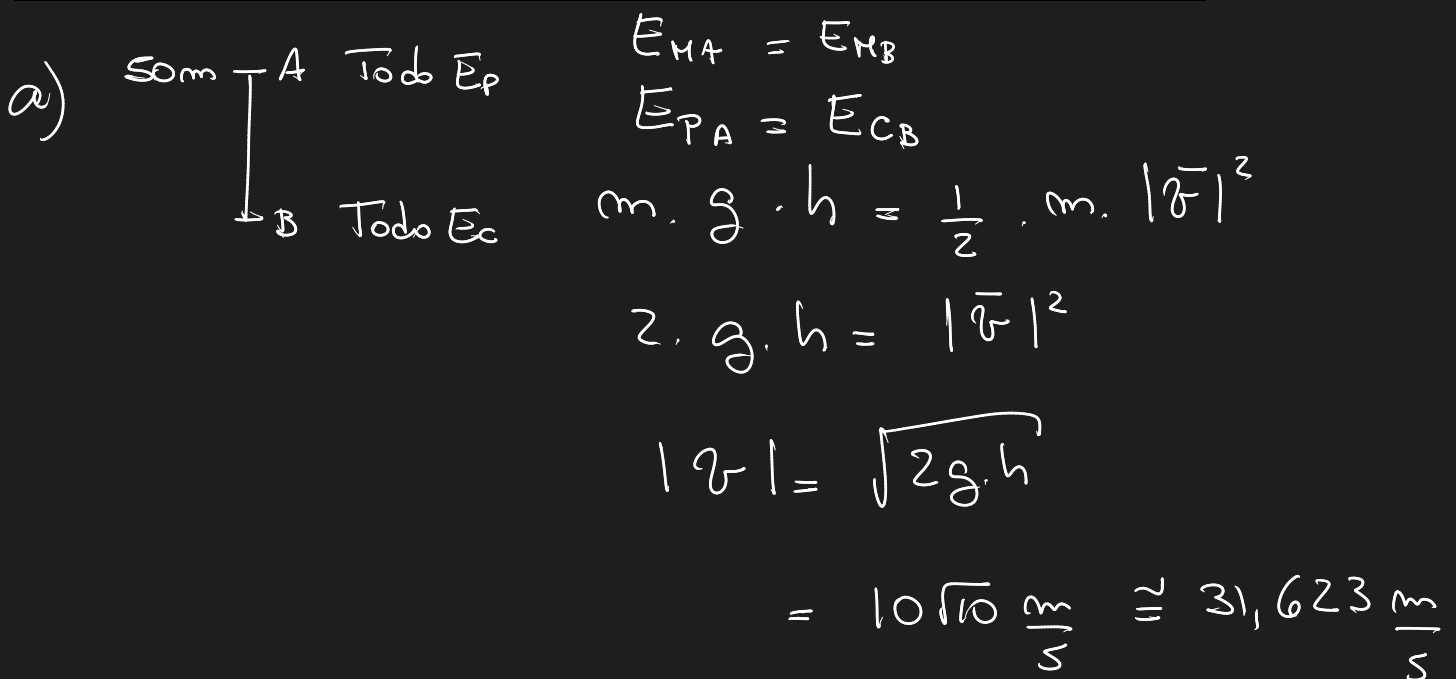 a) 50m A Todo Ep
B Todo Ec
E_MA = E_MB
E_PA = E_CB
m . g . h = 1/2 . m . |v̄|²
2 . g . h = |v̄|²
|v| = √2g.h
= 10√10 m/s ≅ 31,623 m/s